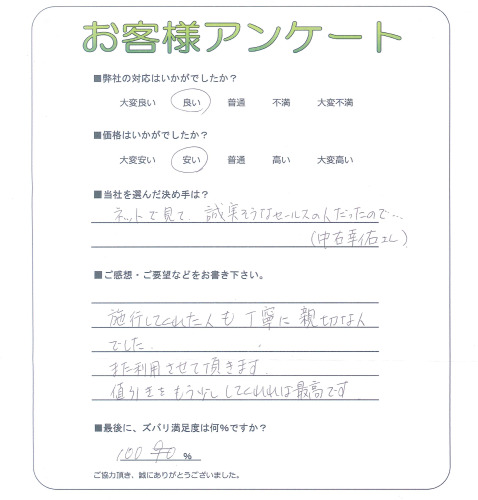 お客様アンケート
■弊社の対応はいかがでしたか？
大変良い 良い 普通 不満 大変不満
■価格はいかがでしたか？
大変安い 安い 普通 高い 大変高い
■当社を選んだ決め手は？
ネットで見て、誠実そうなセールスの人だったので…
(中石幸佑さん)
■ご感想・ご要望などをお書き下さい。
施行してくれた人も丁寧に親切な人
でした。
また利用させて頂きます。
値引きをもう少ししてくれれば最高です
■最後に、ズバリ満足度は何％ですか？
100 90 %
ご協力頂き、誠にありがとうございました。